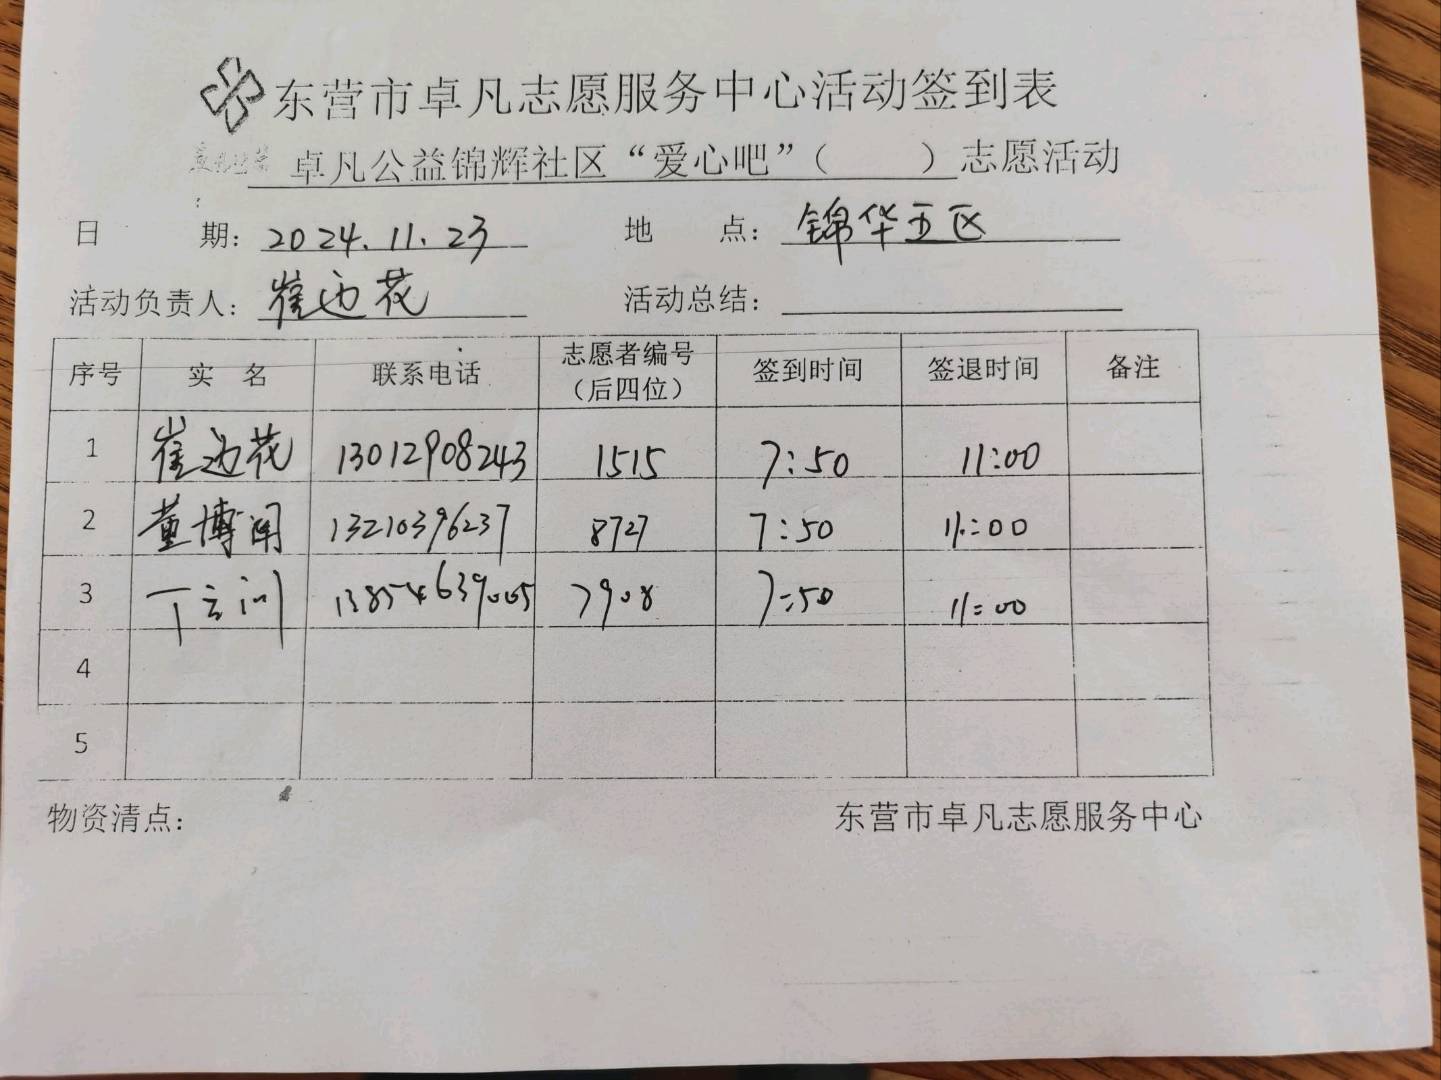 东营市卓凡志愿服务中心活动签到表
卓凡公益锦辉社区“爱心吧”（ ）志愿活动
日 期：2024.11.23 地 点：锦华五区
活动负责人：崔边花 活动总结：
序号 实 名 联系电话 志愿者编号（后四位） 签到时间 签退时间 备注
1 崔边花 13012908243 1515 7:50 11:00
2 董博闻 13210396237 8727 7:50 11:00
3 丁云 13854639005 7908 7:50 11:00
4
5
物资清点： 东营市卓凡志愿服务中心